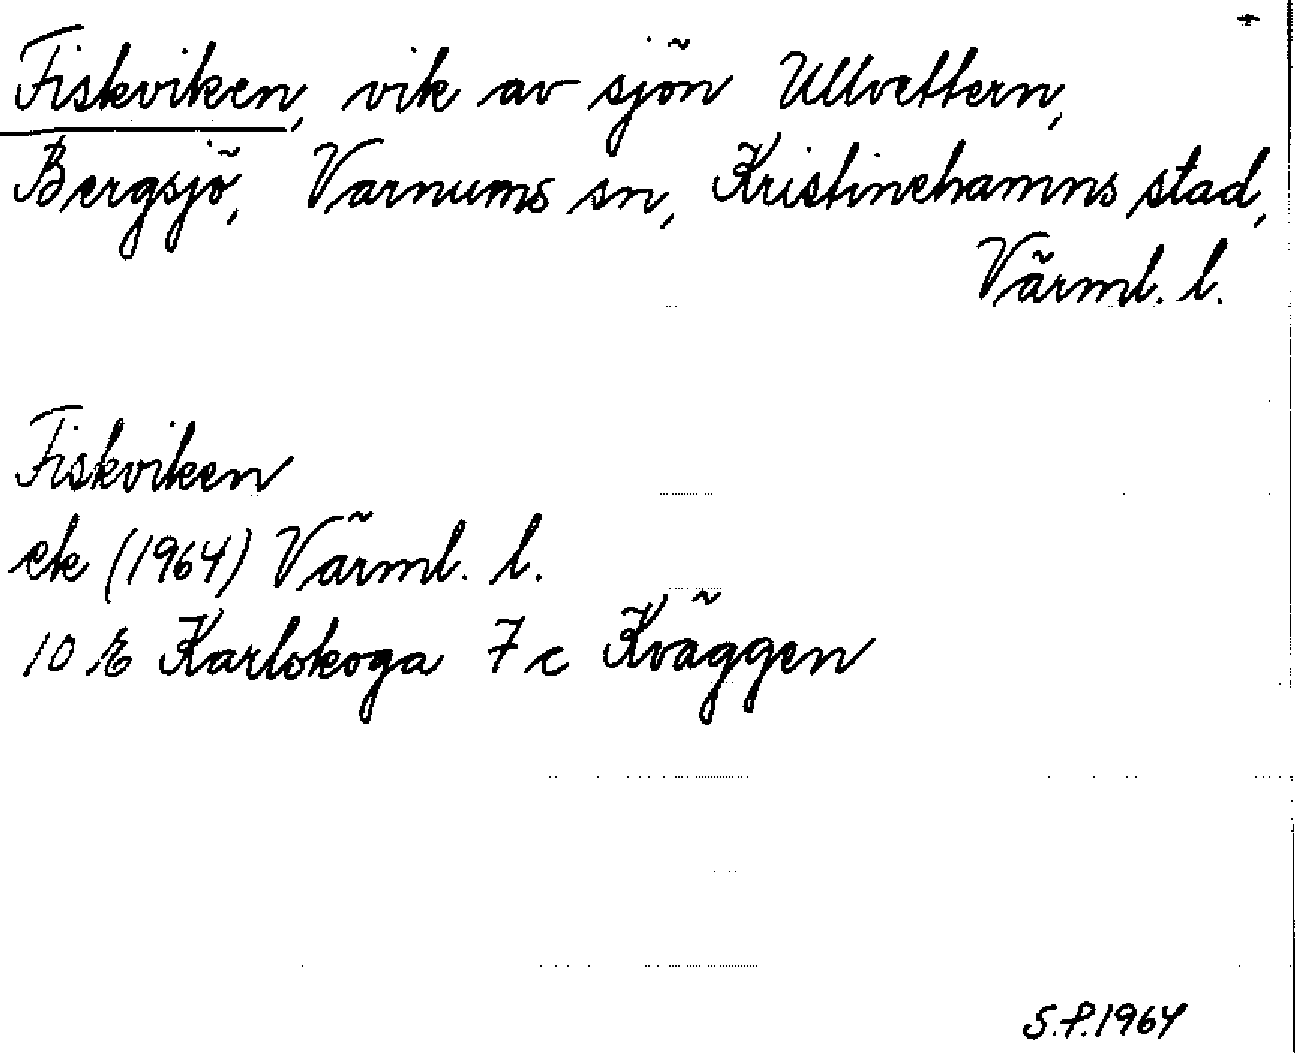 Fiskviken, vik av sjön Ullvettern,
Bergsjö, Varnums sn, Kristinehamns stad,
Värml. l.
Fiskviken
ek (1964) Värml. l.
10 E Karlskoga 7 c Kväggen
S.P.1964